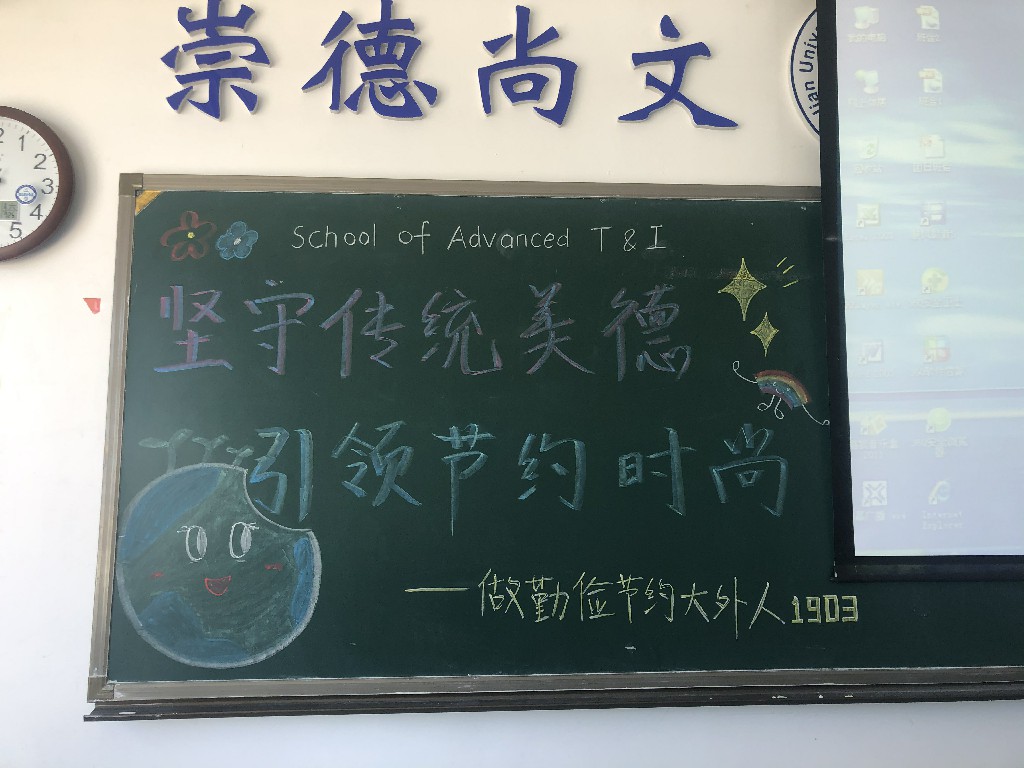 崇德尚文
lian Unive
1
2
3
4
5
School of Advanced T & I
坚守传统美德
引领节约时尚
——做勤俭节约大外人1903
Internet
Explorer